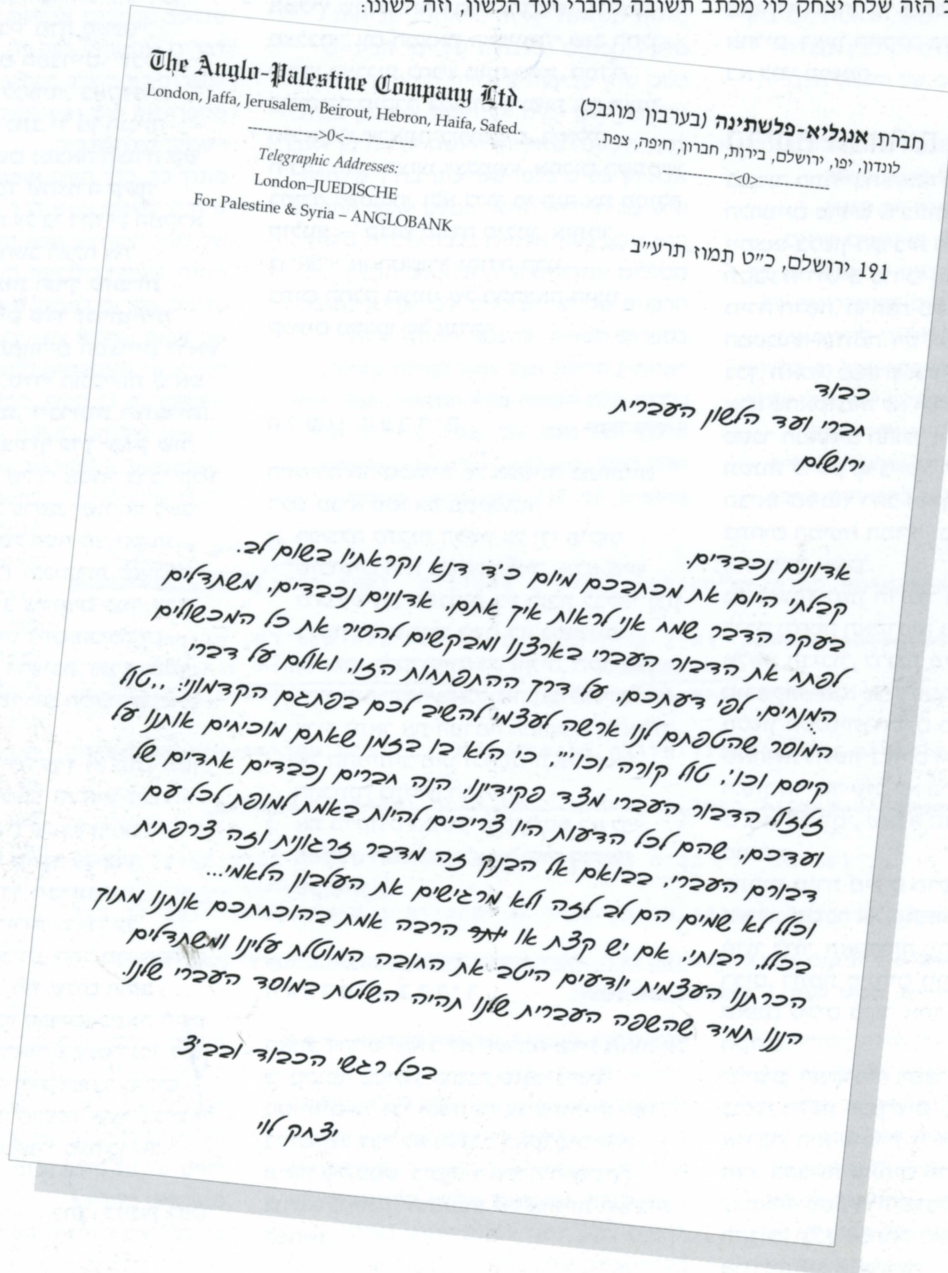 ב הזה שלח יצחק לוי מכתב תשובה לחברי ועד הלשון, וזה לשונו:
The Anglo-Palestine Company Ltd.
London, Jaffa, Jerusalem, Beirout, Hebron, Haifa, Safed.
>0<
Telegraphic Addresses:
London–JUEDISCHE
For Palestine & Syria – ANGLOBANK
חברת אנגליא-פלשתינה (בערבון מוגבל)
לונדון, יפו, ירושלם, בירות, חברון, חיפה, צפת.
>0<
191 ירושלם, כ״ט תמוז תרע״ב
כבוד
חברי ועד הלשון העברית
ירושלם
אדונים נכבדים.
קבלתי היום את מכתבכם מיום כ״ד דנא וקראתיו בשום לב.
בעקר הדבר שמח אני לראות איך אתם, אדונים נכבדים, משתדלים
לפתח את הדבור העברי בארצנו ומבקשים להסיר את כל המכשולים
המֻנחים, לפי דעתכם, על דרך ההתפתחות הזו. ואולם על דברי
המוסר שהטפתם לנו ארשה לעצמי להשיב לכם בפתגם הקדמוני: ״טול
קיסם וכו׳. טול קורה וכו׳״. כי הלא בו בזמן שאתם מוכיחים אותנו על
זלזול הדבור העברי מצד פקידינו, הנה חברים נכבדים אחדים של
ועדכם, שהם לכל הדעות היו צריכים להיות באמת למופת לכל עם
דבורם העברי, בבואם אל הבנק זה מדבר זרגונית וזה צרפתית
וכלל לא שמים הם לב לזה ולא מרגישים את העלבון הלאמי...
בכלל רבותי, אם יש קצת או יותר הרבה אמת בהוכחתכם אנחנו מתוך
הכרתנו העצמית יודעים היטב את החובה המוטלת עלינו ומשתדלים
הננו תמיד שהשפה העברית שלנו תהיה השלטת במוסד העברי שלנו.
בכל רגשי הכבוד ובב״צ
יצחק לוי